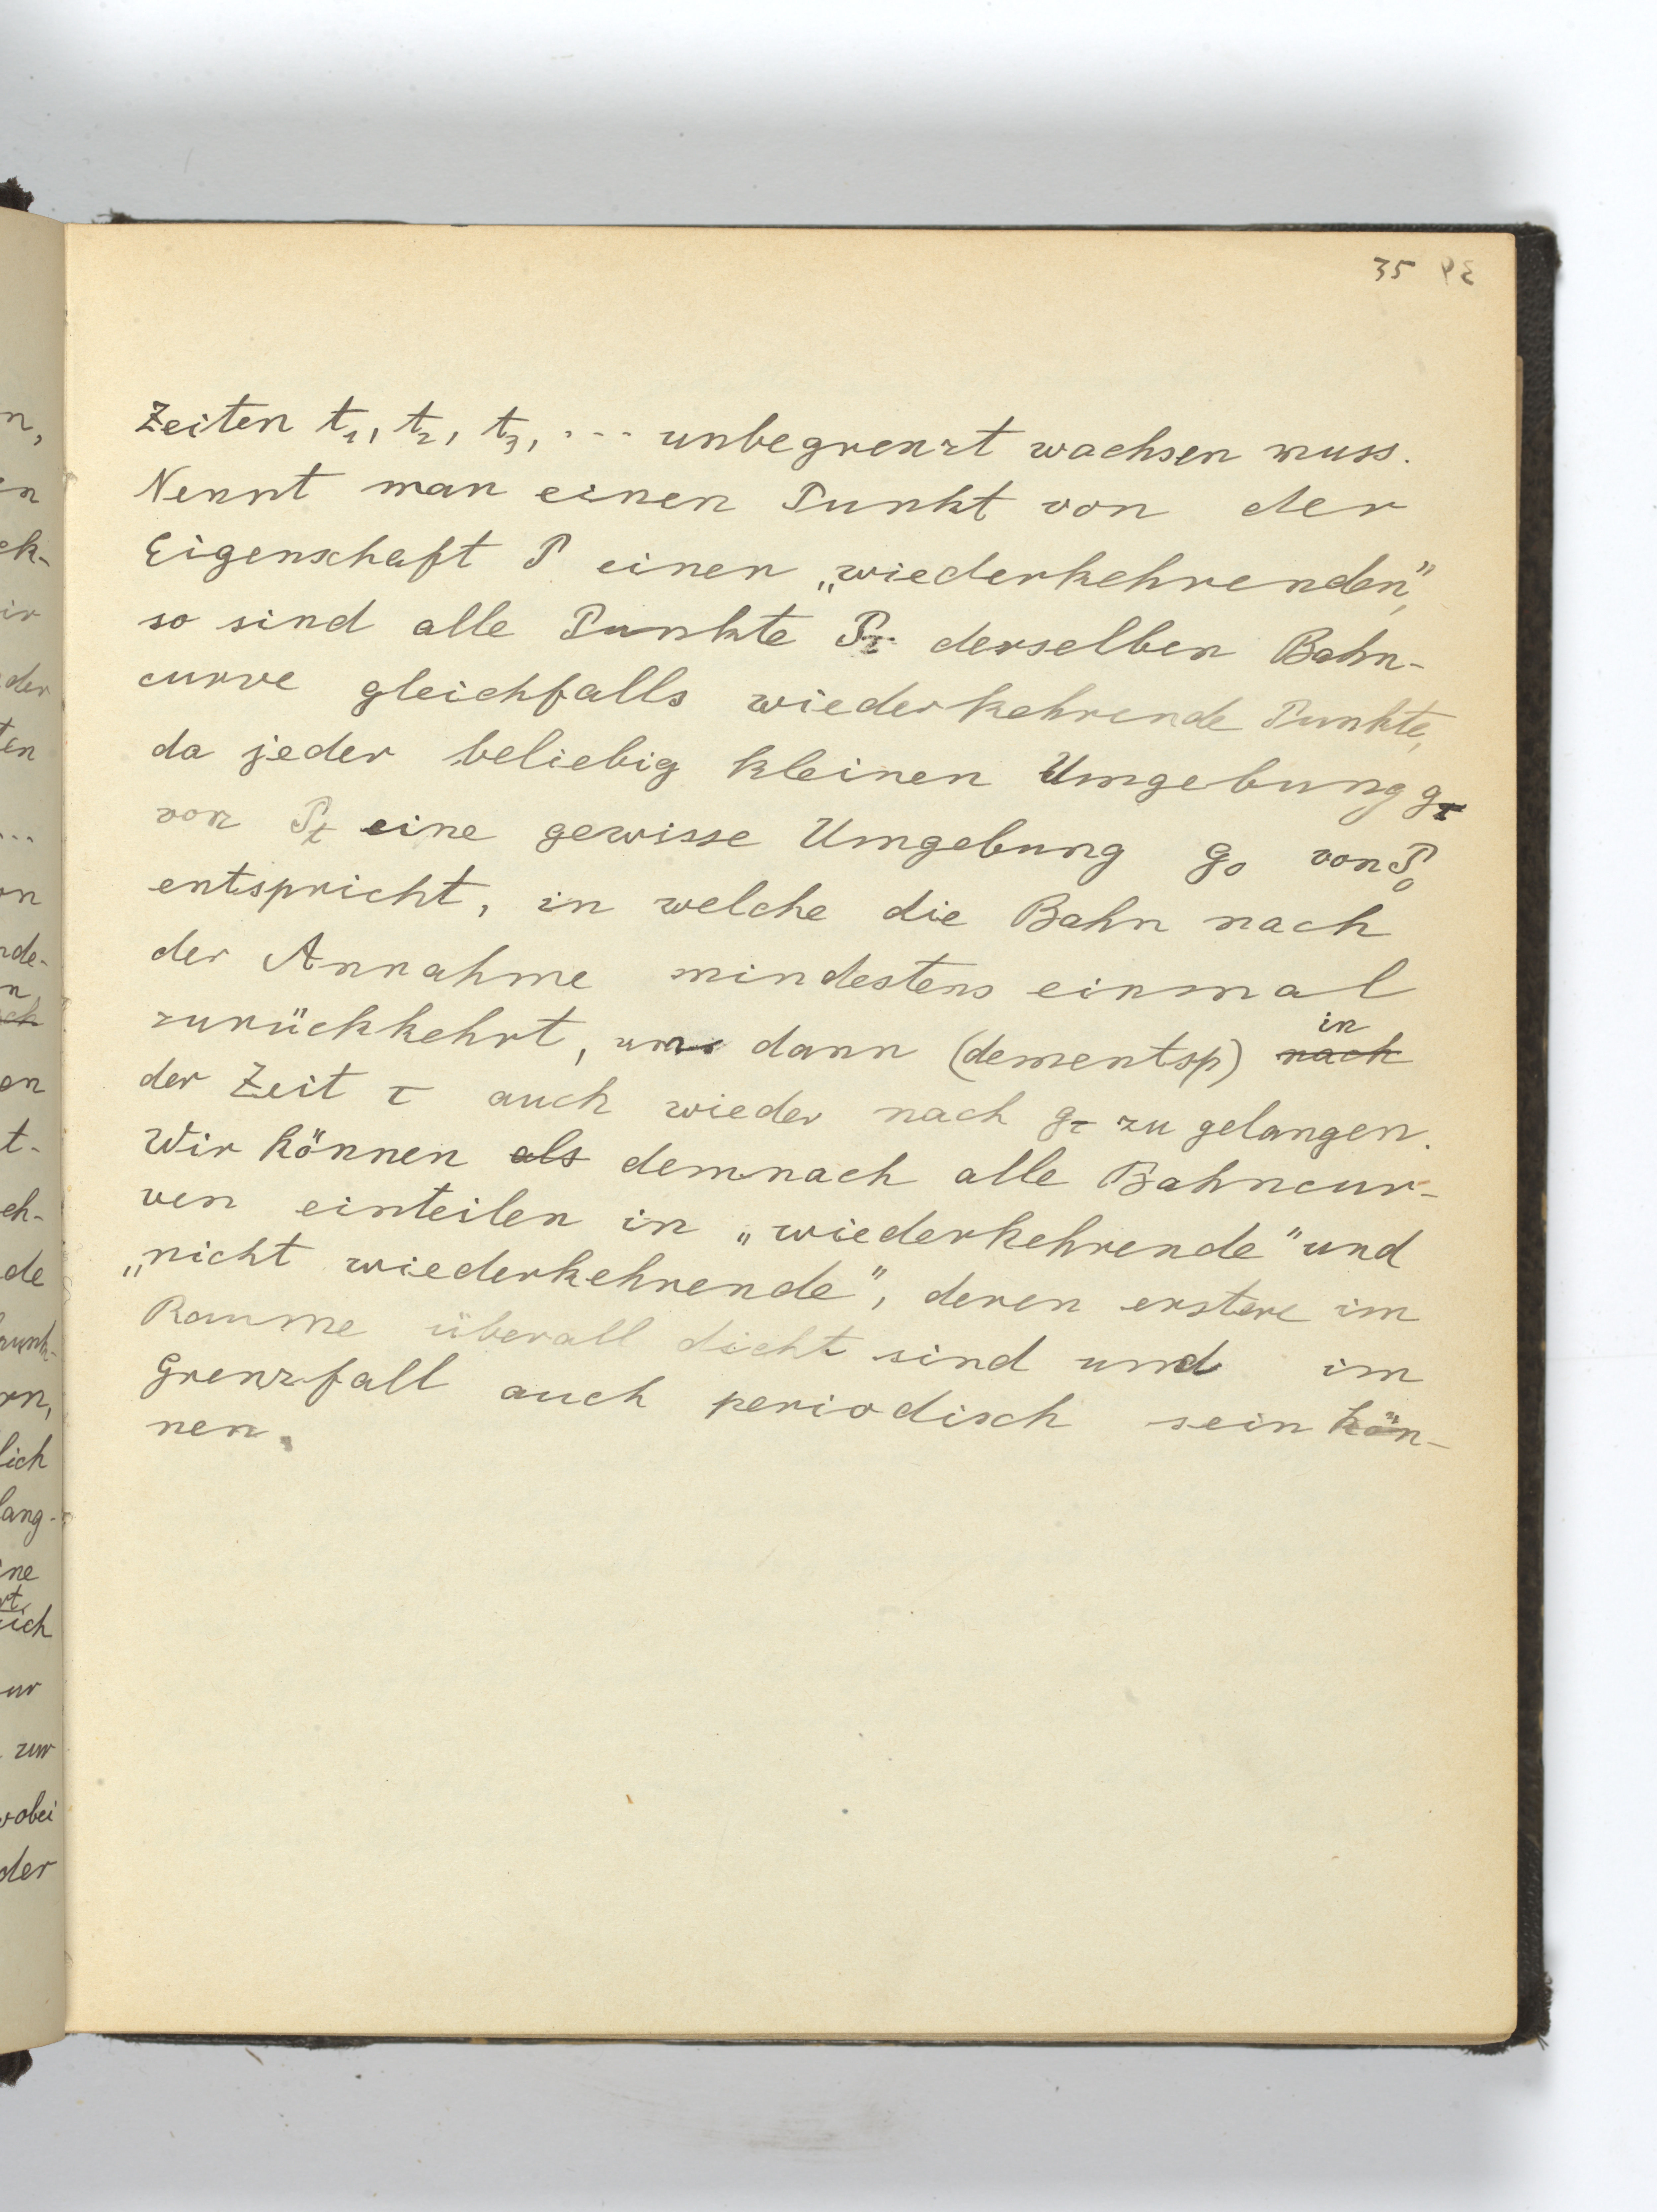 35
Zeiten t₁, t₂, t₃, ... unbegrenzt wachsen muss.
Nennt man einen Punkt von der
Eigenschaft P einen „wiederkehrenden",
so sind alle Punkte Pτ derselben Bahn-
curve gleichfalls wiederkehrende Punkte,
da jeder beliebig kleinen Umgebung gτ
von Pτ eine gewisse Umgebung g₀ von P₀
entspricht, in welche die Bahn nach
der Annahme mindestens einmal
zurückkehrt, um dann (dementsp) nach in
der Zeit τ auch wieder nach gτ zu gelangen.
Wir können als demnach alle Bahncur-
ven einteilen in „wiederkehrende" und
„nicht wiederkehrende", deren erstere im
Raume überall dicht sind und im
Grenzfall auch periodisch sein kön-
nen.